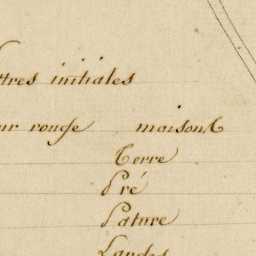 ttres initiales
ur rouge maisons
Terre
Pré
Pature
Landes